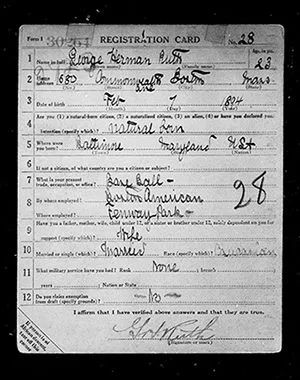 Form 1
REGISTRATION CARD
No. 28
1 Name in full George Herman Ruth
Age, in yrs. 23
(Given name) (Family name)
2 Home address 680 Commonwealth Ave Boston Mass
(No.) (Street) (City) (State)
3 Date of birth Feb 7 1894
(Month) (Day) (Year)
4 Are you (1) a natural-born citizen, (2) a naturalized citizen, (3) an alien, (4) or have you declared your
intention (specify which)? natural born
5 Where were you born? Baltimore Maryland USA
(Town) (State) (Nation)
6 If not a citizen, of what country are you a citizen or subject?
7 What is your present trade, occupation, or office? Base Ball
28
8 By whom employed? Boston American
Where employed? Fenway Park
9 Have you a father, mother, wife, child under 12, or a sister or brother under 12, solely dependent on you for
support (specify which)? Wife
10 Married or single (which)? Married Race (specify which)? Caucasian
11 What military service have you had? Rank None
years Nation or State
12 Do you claim exemption from draft (specify grounds)? No
I affirm that I have verified above answers and that they are true.
(Signature or mark)